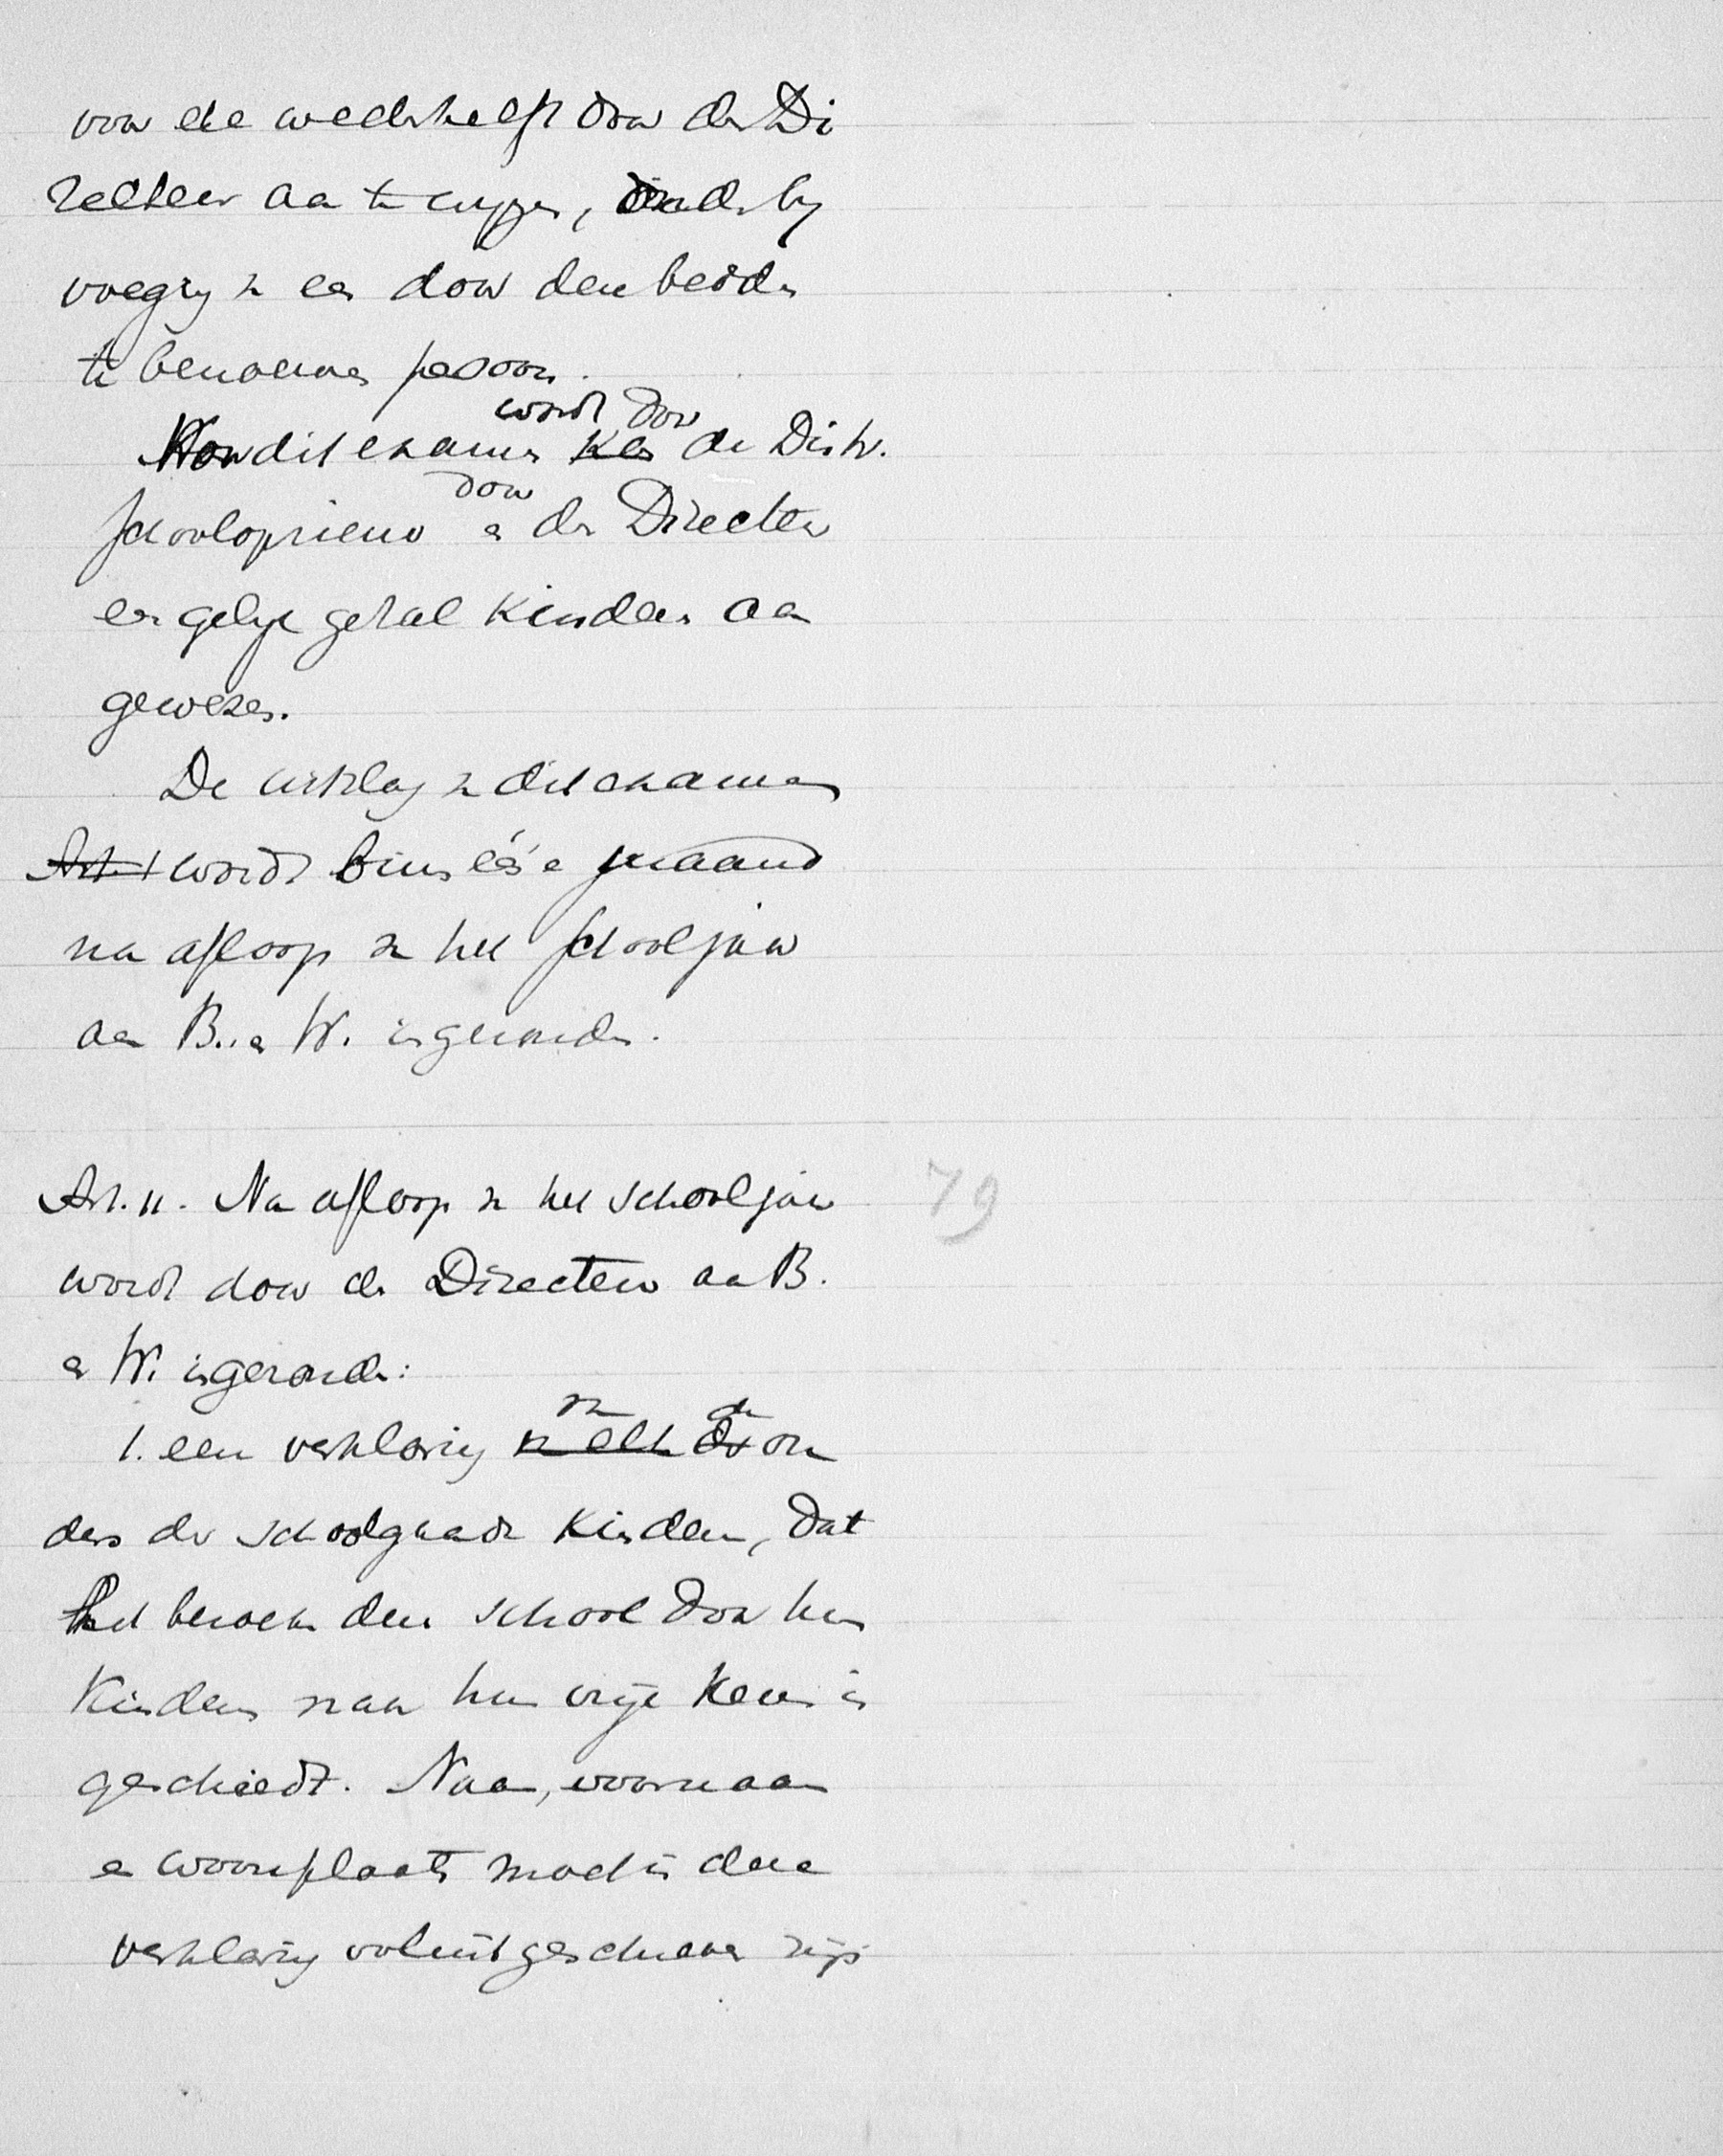 voor de wederhelft door den Di
recteur aan te wijzen, onder bij
voeging van een door den beiden
te benoemen persoon.
wordt door
Voor dit examen kan de Distr.
door
schoolopziener en den Directeur
een gelijk getal kinderen aan
gewezen.
De uitslag van dit examen
Art. 1 wordt binnen ééne maand
na afloop van het schooljaar
aan B. en W. ingezonden.
Art. 11. Na afloop van het schooljaar 79
wordt door den Directeur aan B.
en W. ingezonden:
van de
1. een verklaring van elk der ou
ders der schoolgaande kinderen, dat
het bezoeken dezer school door hun
kinderen naar hun vrije keuze is
geschiedt. Naam, voornaam
en woonplaats moet in deze
verklaring voluit geschreven zijn